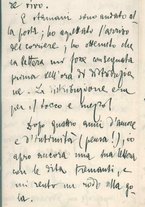 de vivo.
E stamani sono andato al
la posta, ho aspettato l'arrivo
del corriere, ho ottenuto che
la lettera mi fosse consegnata
prima dell'ora di distribuzio
ne. La distribuzione era
per il tocco e mezzo!
Dopo quattro anni d'amore
e d'intimità (pensa!), io
apro ancora una tua lettera
con le dita tremanti, e
mi sento un nodo alla go
la.